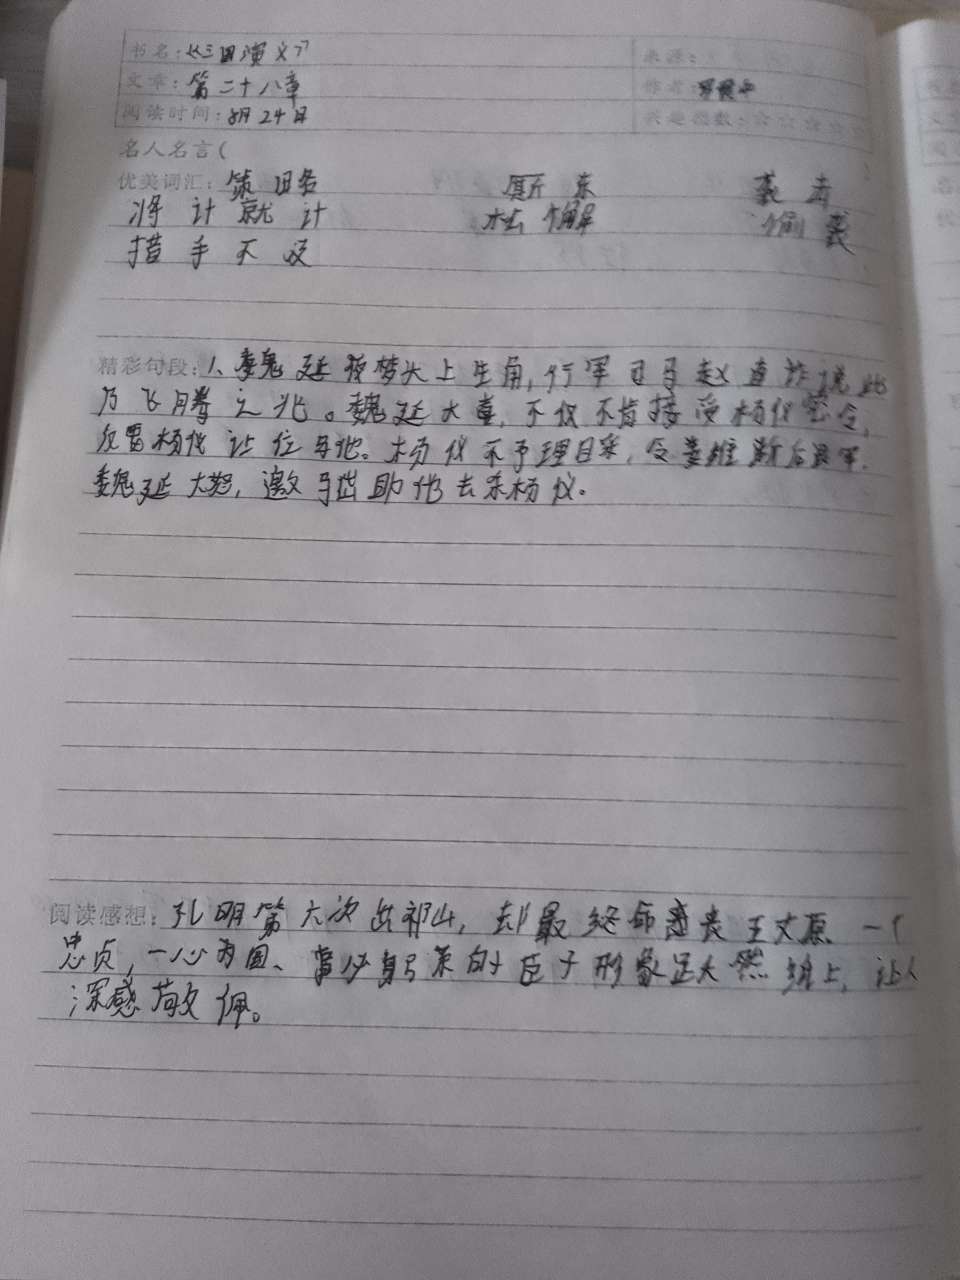 书名:《三国演义》 来源:
文章:第二十八章 作者:罗贯中
阅读时间:8月24日 兴趣指数:☆☆☆☆☆
名人名言(
优美词汇: 策 袭击
将计就计 偷袭
措手不及
精彩句段:1、魏延夜梦头上生角,行军司马赵直诈说此
乃飞腾之兆。魏延大喜,不仅不肯接受杨仪密令,
反要杨仪让位与他。杨仪不予理目采,令姜维断后退军.
魏延大怒,邀马岱助他去杀杨仪。
阅读感想:孔明第六次出祁山,却最终命丧五丈原 一个
忠贞,一心为国、 臣子形象 上,让人
深感敬佩。